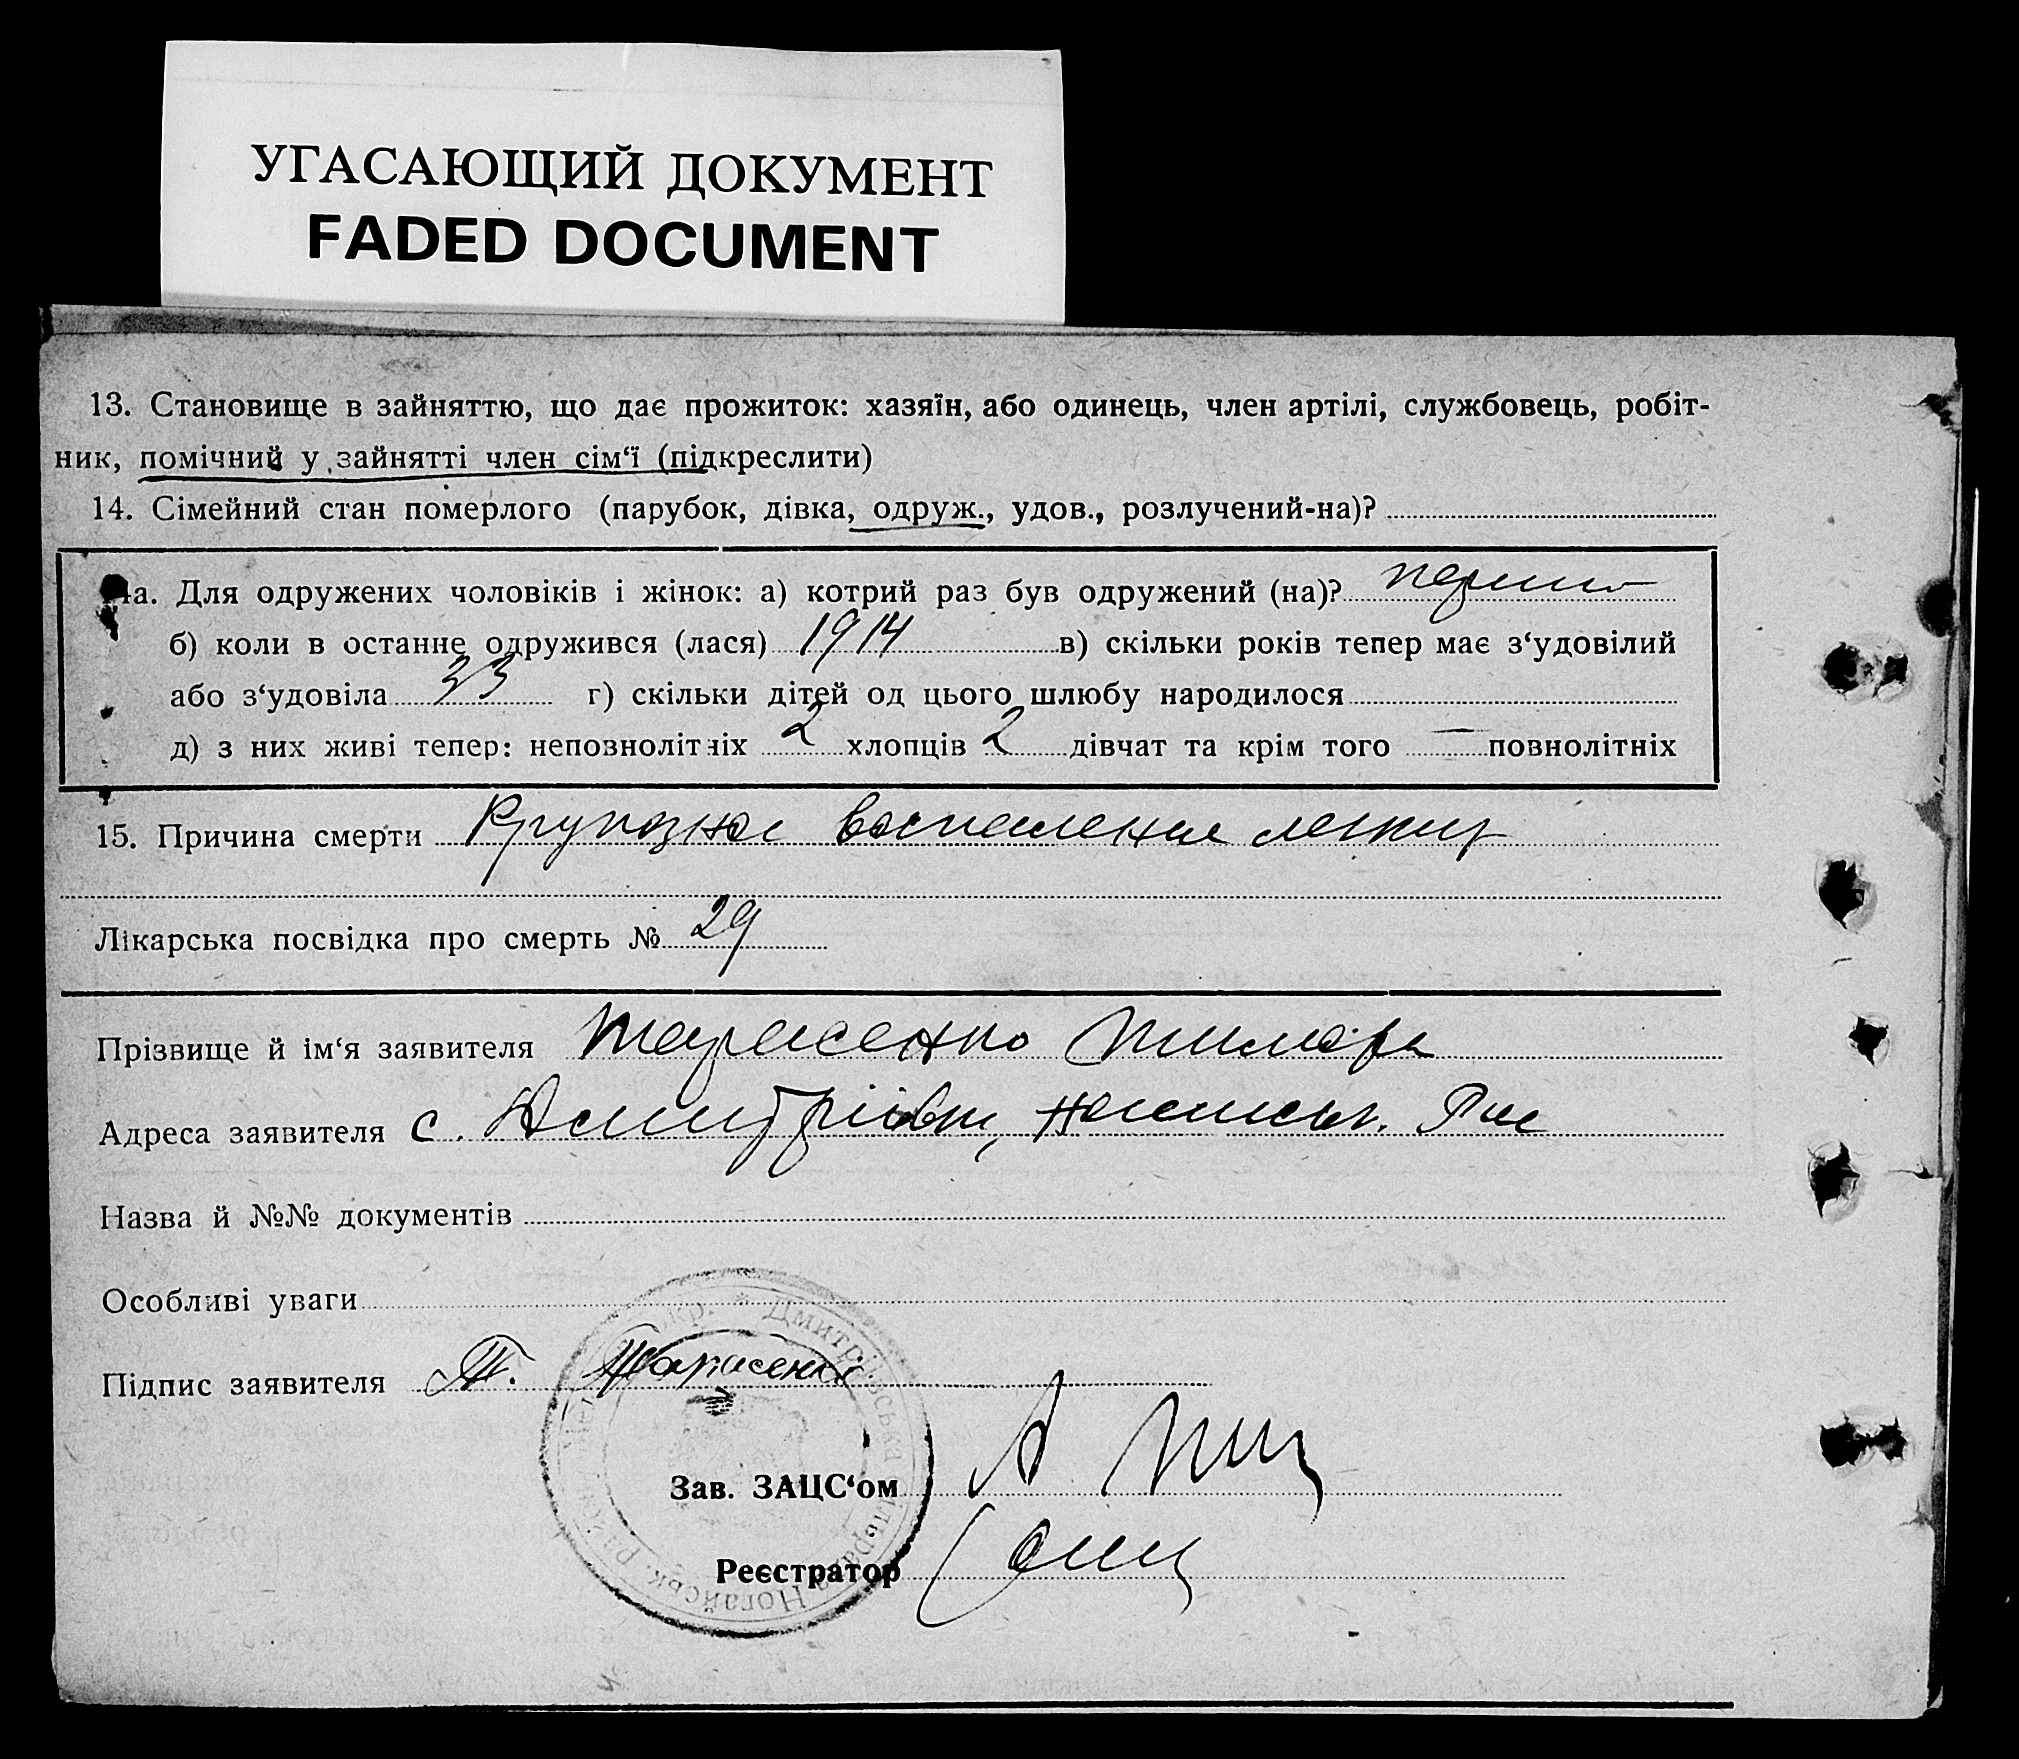 УГАСАЮЩИЙ ДОКУМЕНТ
FADED DOCUMENT
13. Становище в зайняттю, що дає прожиток: хазяїн, або одинець, член артілі, службовець, робіт-
ник, помічний у зайнятті член сім‘ї (підкреслити)
14. Сімейний стан померлого (парубок, дівка, одруж., удов., розлучений-на)?
4а. Для одружених чоловіків і жінок: а) котрий раз був одружений (на)?
б) коли в останнє одружився (лася) 1914 в) скільки років тепер має з‘удовілий
або з‘удовіла 33 г) скільки дітей од цього шлюбу народилося
д) з них живі тепер: неповнолітніх 2 хлопців 2 дівчат та крім того — повнолітніх
15. Причина смерти Крупозне воспаления легких
Лікарська посвідка про смерть № 29
Прізвище й ім‘я заявителя Тарасенко
Адреса заявителя с. Дмитріівки,
Назва й №№ документів
Особливі уваги
Підпис заявителя Т. Тарасенко
Зав. ЗАЦС‘ом
Реєстратор
Дмитрівська Ногайськ.